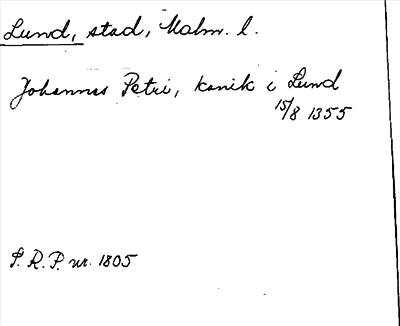 Lund, stad, Malm. l.
Johannes Petri, kanik i Lund
15/8 1355
P. R. P. nr. 1805